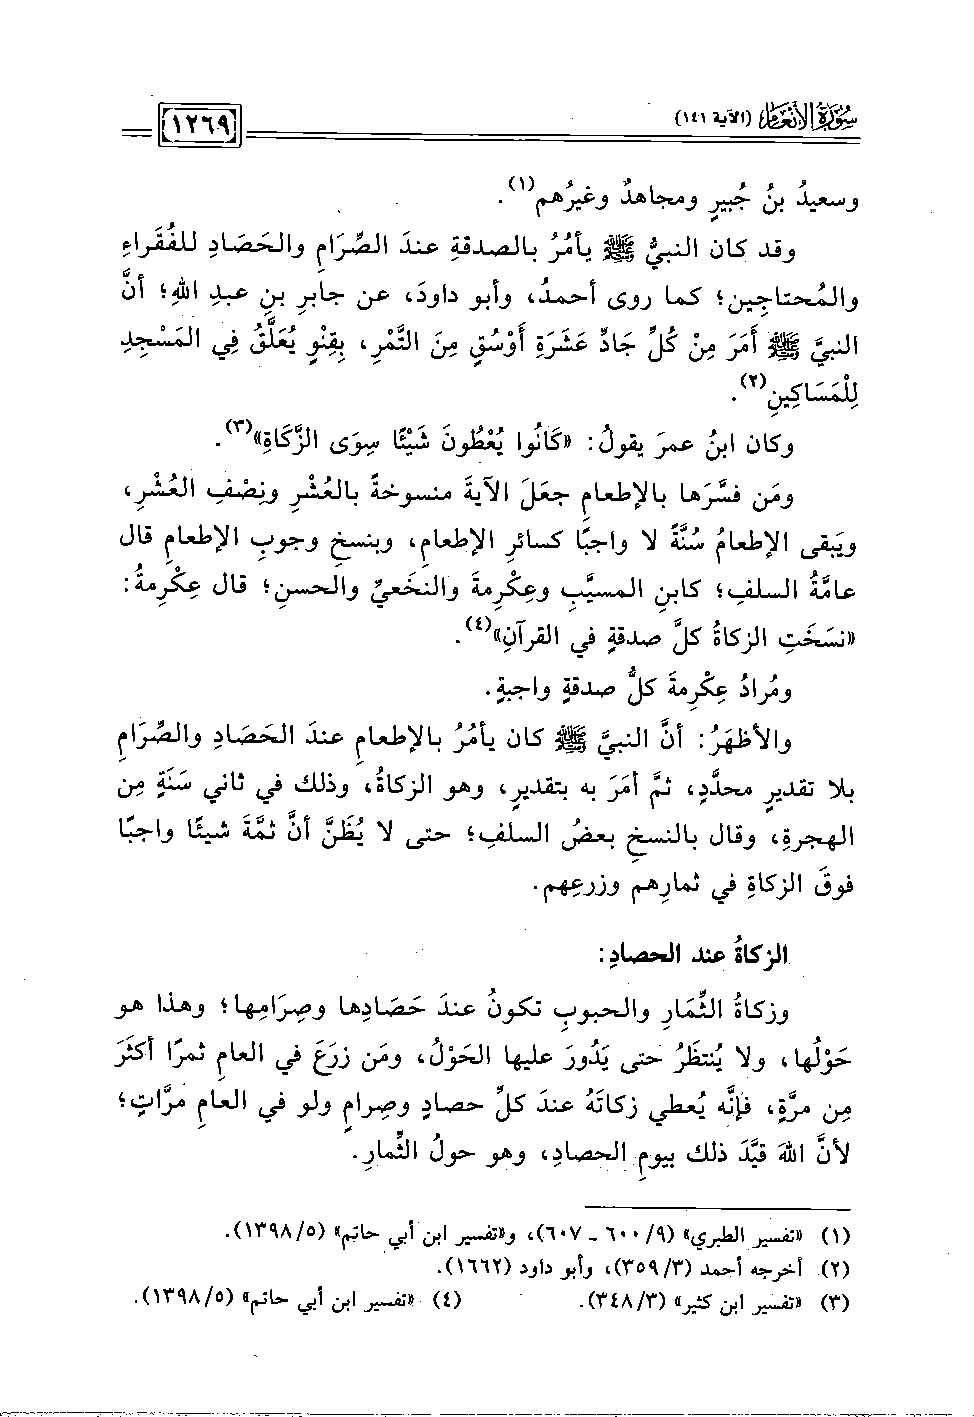 سُورَةُ الأَنْعَامِ (الآية ١٤١)
١٢٦٩
وسعيدُ بنُ جُبيرٍ ومجاهدٌ وغيرُهم(١).
وقد كان النبيُّ ﷺ يأمُرُ بالصدقةِ عندَ الصِّرَامِ والحَصَادِ للفُقَراءِ
والمُحتاجِين؛ كما روى أحمدُ، وأبو داودَ، عن جابرِ بنِ عبدِ اللهِ؛ أنَّ
النبيَّ ﷺ أَمَرَ مِنْ كُلِّ جَادِّ عَشَرَةِ أَوْسُقٍ مِنَ التَّمْرِ، بِقِنْوٍ يُعَلَّقُ فِي المَسْجِدِ
لِلْمَسَاكِينِ(٢).
وكان ابنُ عمرَ يقولُ: «كَانُوا يُعْطُونَ شَيْئًا سِوَى الزَّكَاةِ»(٣).
ومَن فسَّرَها بالإطعامِ جعَلَ الآيةَ منسوخةً بالعُشْرِ ونِصْفِ العُشْرِ،
ويَبقى الإطعامُ سُنَّةً لا واجبًا كسائرِ الإطعامِ، وبنسخِ وجوبِ الإطعامِ قال
عامَّةُ السلفِ؛ كابنِ المسيَّبِ وعِكْرِمةَ والنخَعيِّ والحسنِ؛ قال عِكْرِمةُ:
«نسَخَتِ الزكاةُ كلَّ صدقةٍ في القرآنِ»(٤).
ومُرادُ عِكْرِمةَ كلُّ صدقةٍ واجبةٍ.
والأظهَرُ: أنَّ النبيَّ ﷺ كان يأمُرُ بالإطعامِ عندَ الحَصَادِ والصِّرَامِ
بلا تقديرٍ محدَّدٍ، ثمَّ أمَرَ به بتقديرٍ، وهو الزكاةُ، وذلك في ثاني سَنَةٍ مِن
الهجرةِ، وقال بالنسخِ بعضُ السلفِ؛ حتى لا يُظَنَّ أنَّ ثمَّةَ شيئًا واجبًا
فوقَ الزكاةِ في ثمارِهم وزرعِهم.
الزكاةُ عند الحصادِ:
وزكاةُ الثِّمَارِ والحبوبِ تكونُ عندَ حَصَادِها وصِرَامِها؛ وهذا هو
حَوْلُها، ولا يُنتظَرُ حتى يَدُورَ عليها الحَوْلُ، ومَن زرَعَ في العامِ ثمرًا أكثَرَ
مِن مرَّةٍ، فإنَّه يُعطي زكاتَهُ عندَ كلِّ حصادٍ وصِرامٍ ولو في العامِ مرَّاتٍ؛
لأنَّ اللهَ قيَّدَ ذلك بيومِ الحصادِ، وهو حولُ الثِّمارِ.
(١) «تفسير الطبري» (٩/ ٦٠٠ ـ ٦٠٧)، و«تفسير ابن أبي حاتم» (٥/ ١٣٩٨).
(٢) أخرجه أحمد (٣/ ٣٥٩)، وأبو داود (١٦٦٢).
(٣) «تفسير ابن كثير» (٣/ ٣٤٨). (٤) «تفسير ابن أبي حاتم» (٥/ ١٣٩٨).